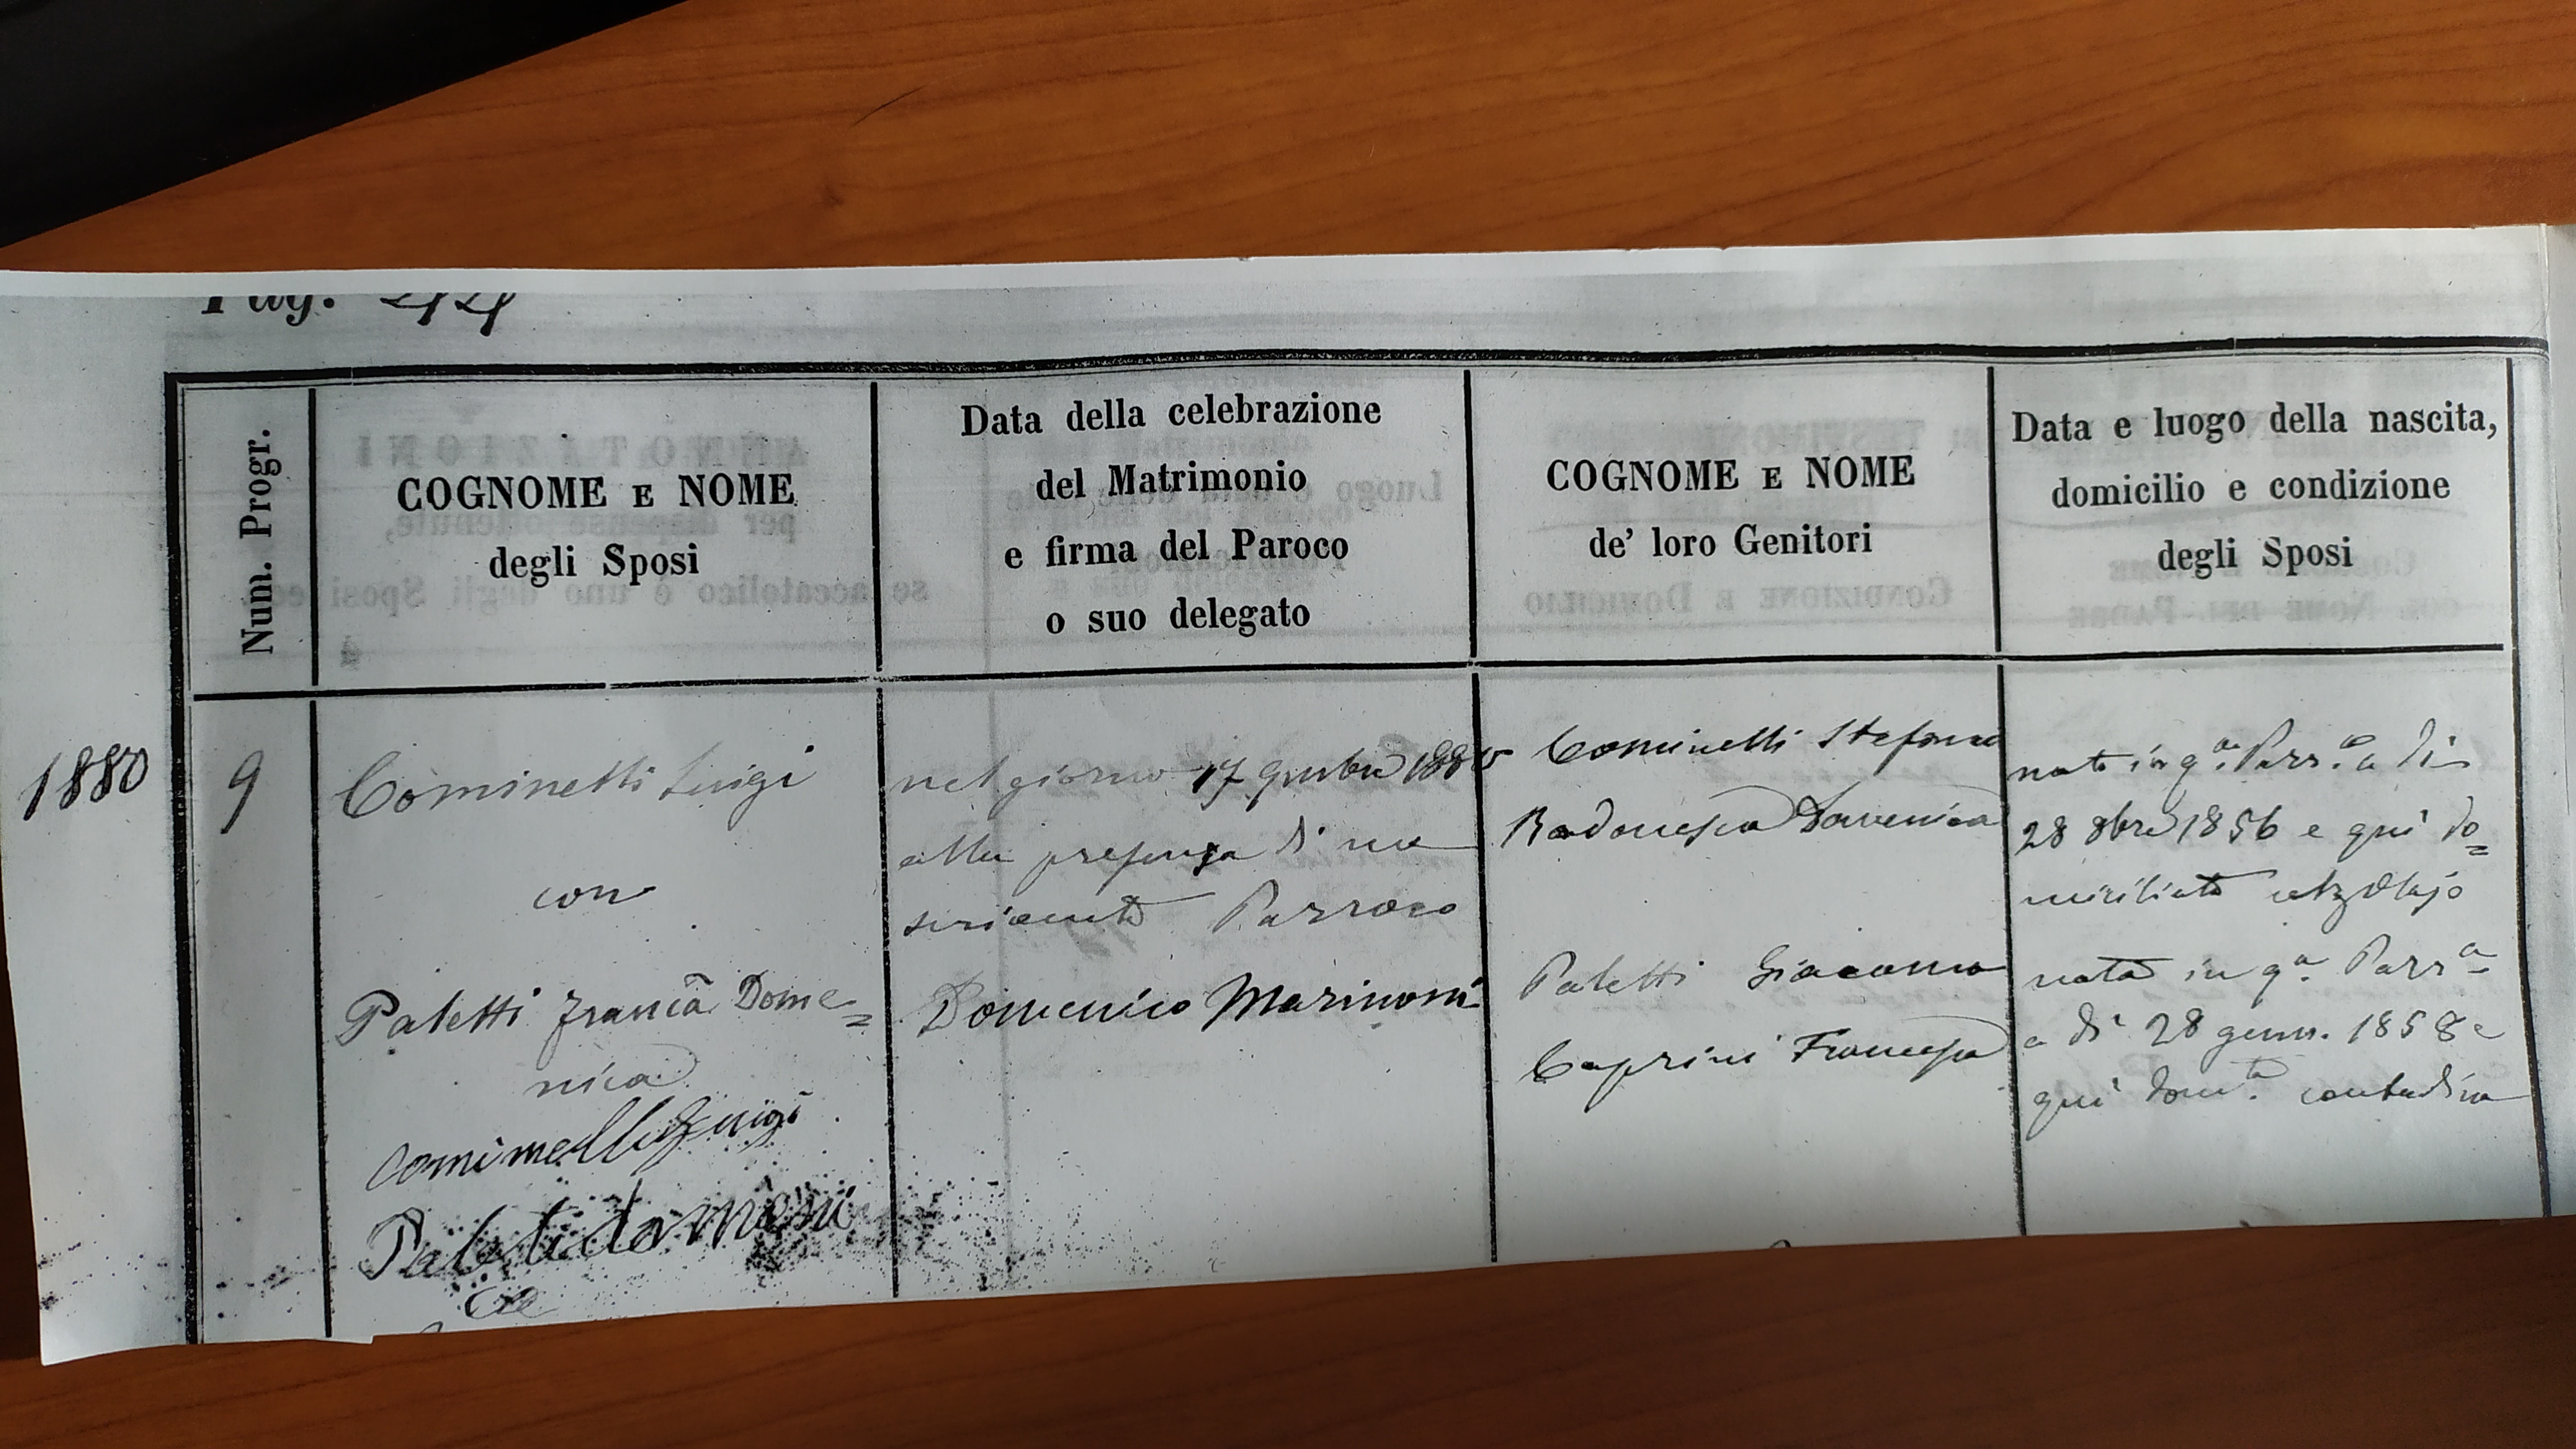 Pag. 24
Num. Progr.
COGNOME E NOME
degli Sposi
Data della celebrazione
del Matrimonio
e firma del Paroco
o suo delegato
COGNOME E NOME
de' loro Genitori
Data e luogo della nascita,
domicilio e condizione
degli Sposi
1880
9
Cominetti Luigi
con
Paletti Franca Dome=
nica
Cominelli Luigi
Paleti domeni
ca
nel giorno 17 9mbre 1880
alla presenza di me
scrivente Parroco
Domenico Marinoni
Cominetti Stefano
Domenica
Paletti Giacomo
Caprini Francesca
nato in qa. Parr.a a di
28 8bre 1856 e qui do=
miciliato
nata in qa. Parra
a di 28 genn. 1858 e
qui domta. contadina